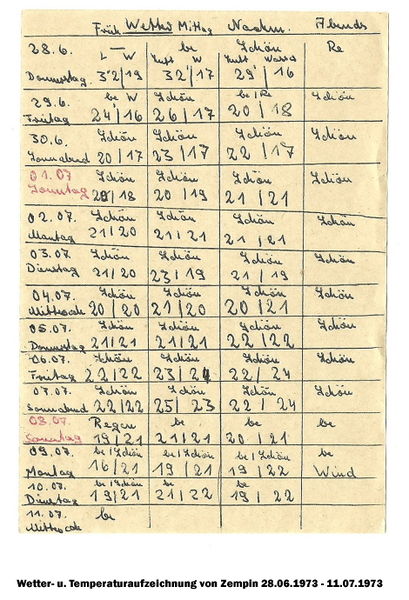 Früh Wetter Mittag Nachm. Abends
28.6. be Schön Re
L - W Luft W Luft Wasser
Donnerstag 32/19 32/17 29/16
29.6. be W Schön be/Re Schön
Freitag 24/16 26/17 20/18
30.6. Schön Schön Schön Schön
Sonnabend 20/17 23/17 22/17
01.07 Schön Schön Schön Schön
Sonntag 20/18 20/19 21/21
02.07. Schön Schön Schön Schön
Montag 21/20 21/21 21/21
03.07. Schön Schön Schön Schön
Dienstag 21/20 23/19 21/19
04.07. Schön Schön Schön Schön
Mittwoch 20/20 21/20 20/21
05.07. Schön Schön Schön Schön
Donnerstag 21/21 21/21 22/22
06.07. Schön Schön Schön Schön
Freitag 22/22 23/24 22/24
07.07. Schön Schön Schön Schön
Sonnabend 22/22 25/23 22/24
08.07. Regen be be be
Sonntag 19/21 21/21 20/21
09.07. be/Schön be/Schön be/Schön be
Montag 16/21 19/21 19/22 Wind
10.07. be/Schön be be
Dienstag 19/21 21/22 19/22
11.07. be
Mittwoch
Wetter- u. Temperaturaufzeichnung von Zempin 28.06.1973 - 11.07.1973